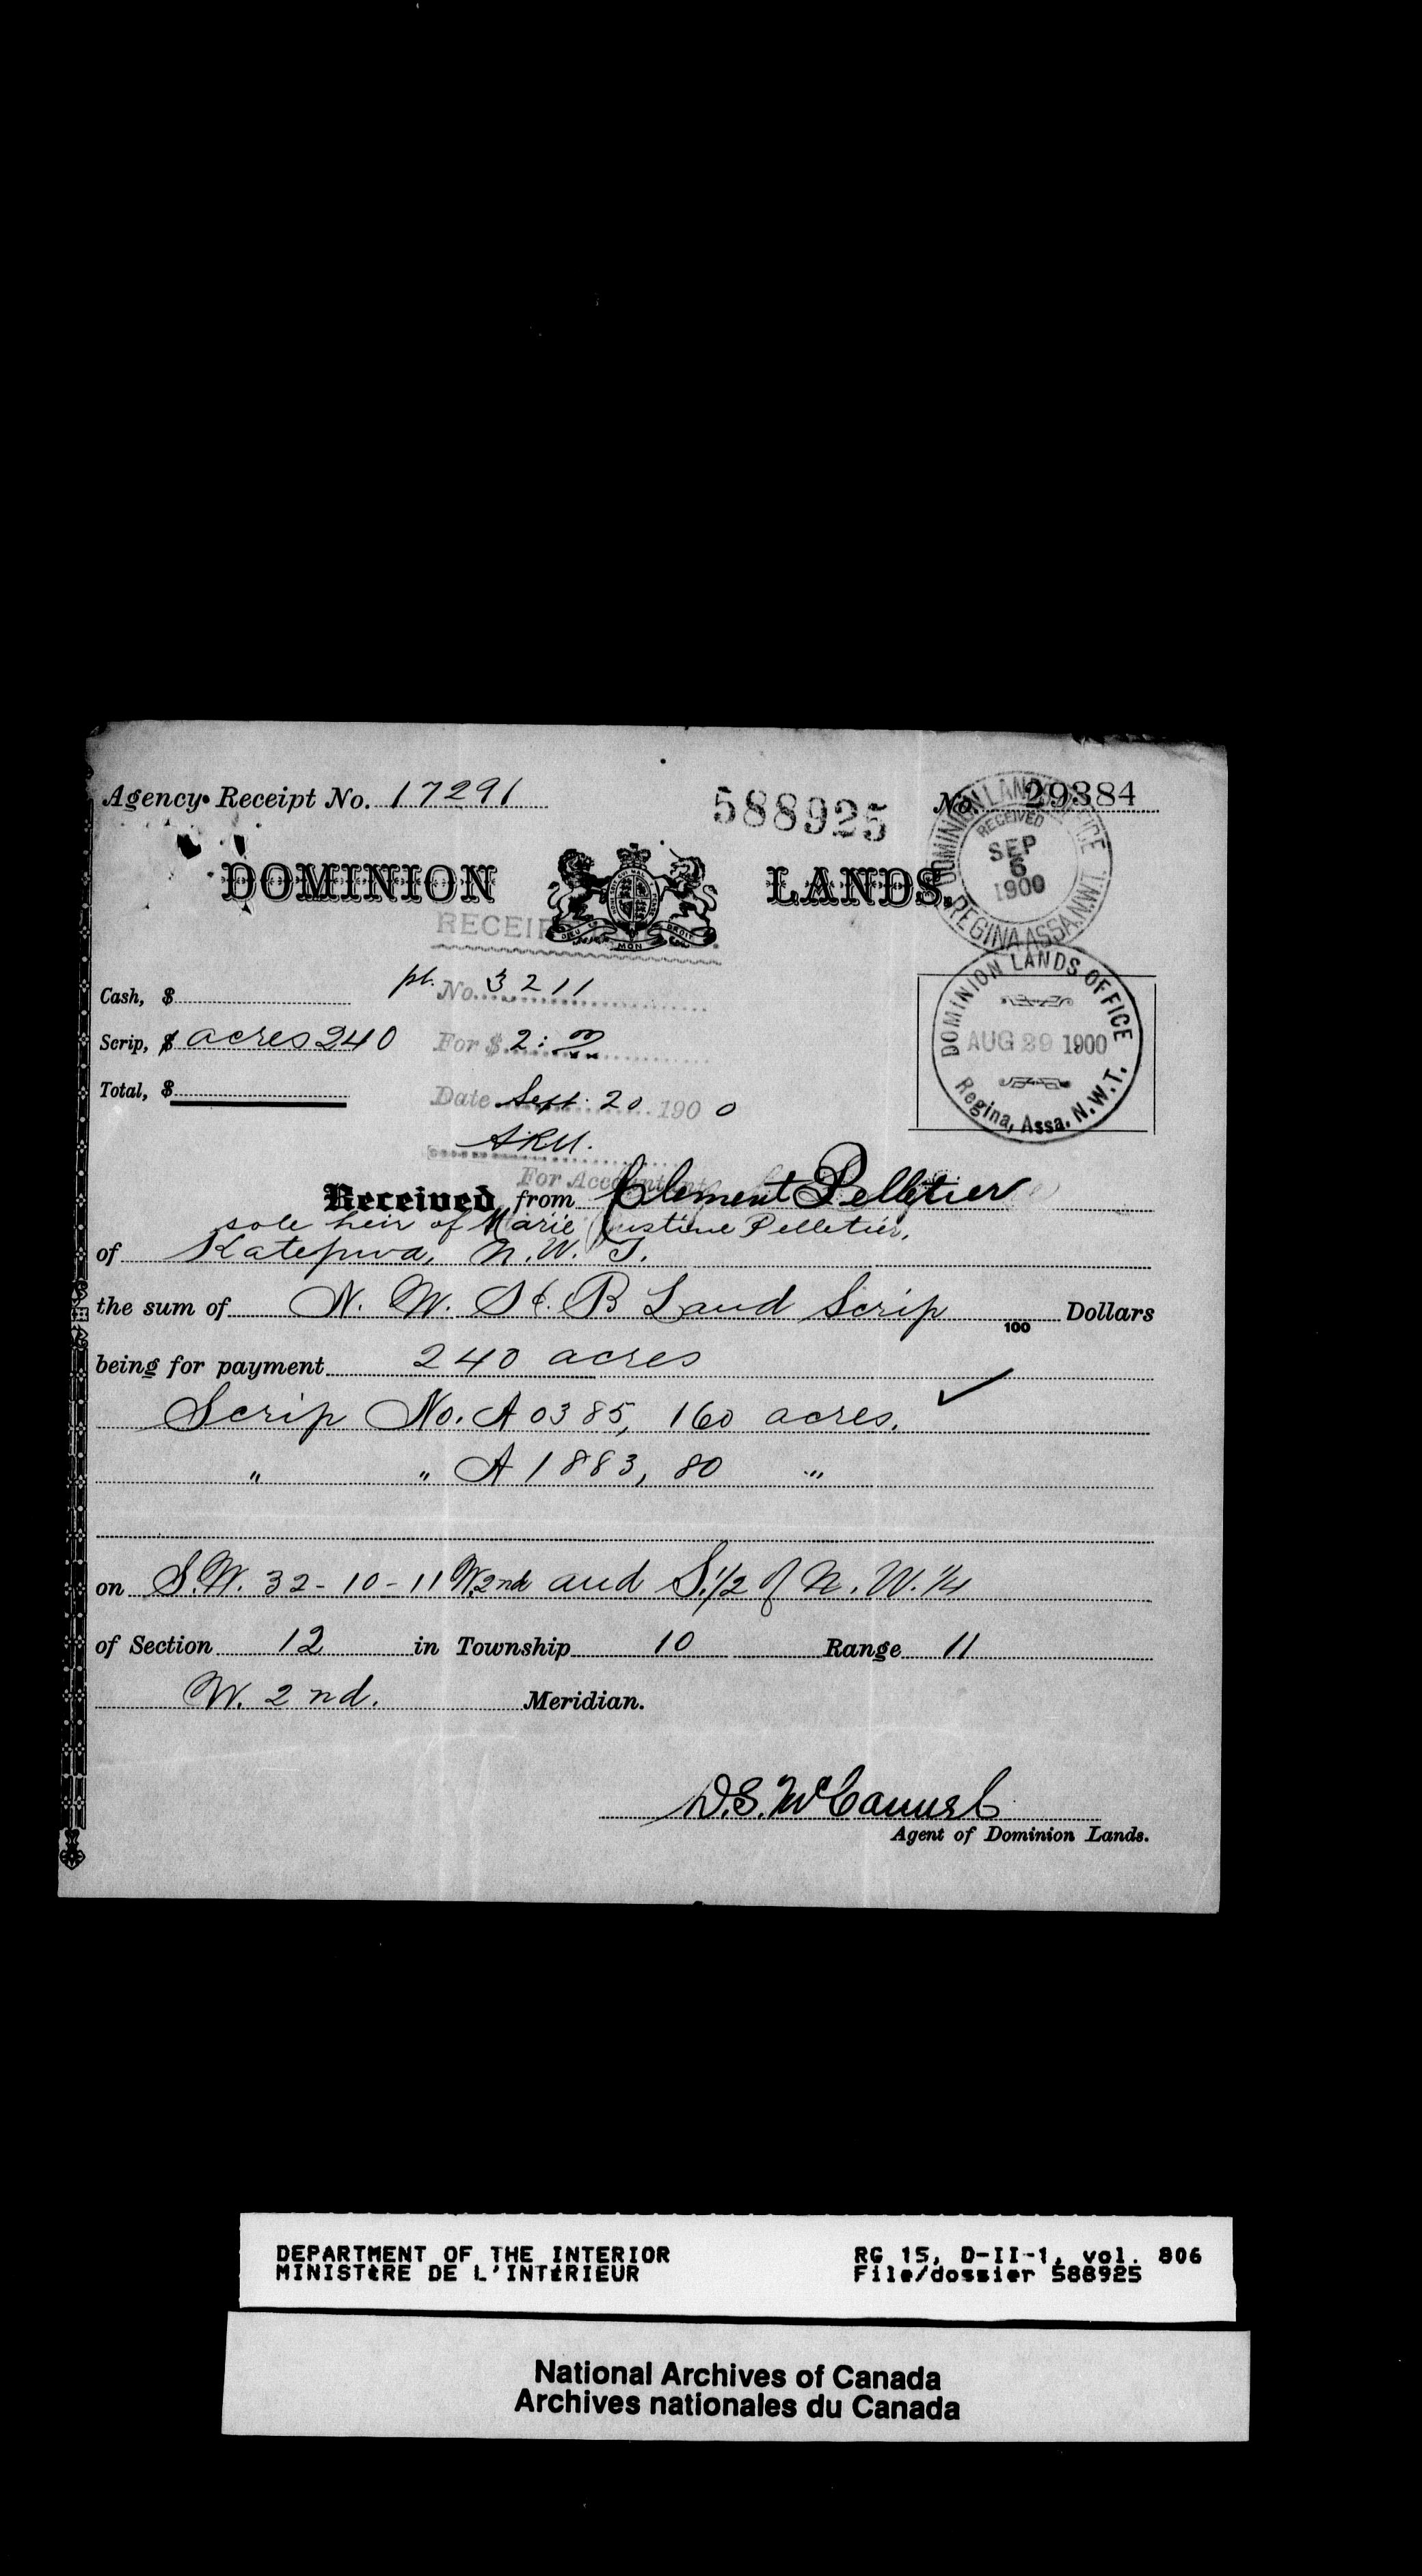 Agency Receipt No. 17291
588925
No. 29384
DOMINION LANDS OFFICE
RECEIVED
SEP
6
1900
REGINA ASSA. N.W.T.
DOMINION LANDS.
DIEU ET MON DROIT
DOMINION LANDS OFFICE
AUG 29 1900
Regina, Assa. N.W.T.
Cash, $
pt. No. 3211
Scrip, $ acres 240
For $ 2:
Total, $
Date Sept. 20 1900
For Accountant
Received from Clement Pelletier
sole heir of Marie Justine Pelletier,
of Katepwa, N. W. T.
the sum of N. W. H. B Land Scrip 100 Dollars
being for payment 240 acres
Scrip No. A 0385, 160 acres.
" " A 1883, 80 "
on S.W. 32-10-11 W2nd and S.1/2 of N. W. 1/4
of Section 12 in Township 10 Range 11
W. 2nd. Meridian.
Agent of Dominion Lands.
DEPARTMENT OF THE INTERIOR
MINISTÈRE DE L'INTÉRIEUR
RG 15, D-II-1, vol. 806
File/dossier 588925
National Archives of Canada
Archives nationales du Canada